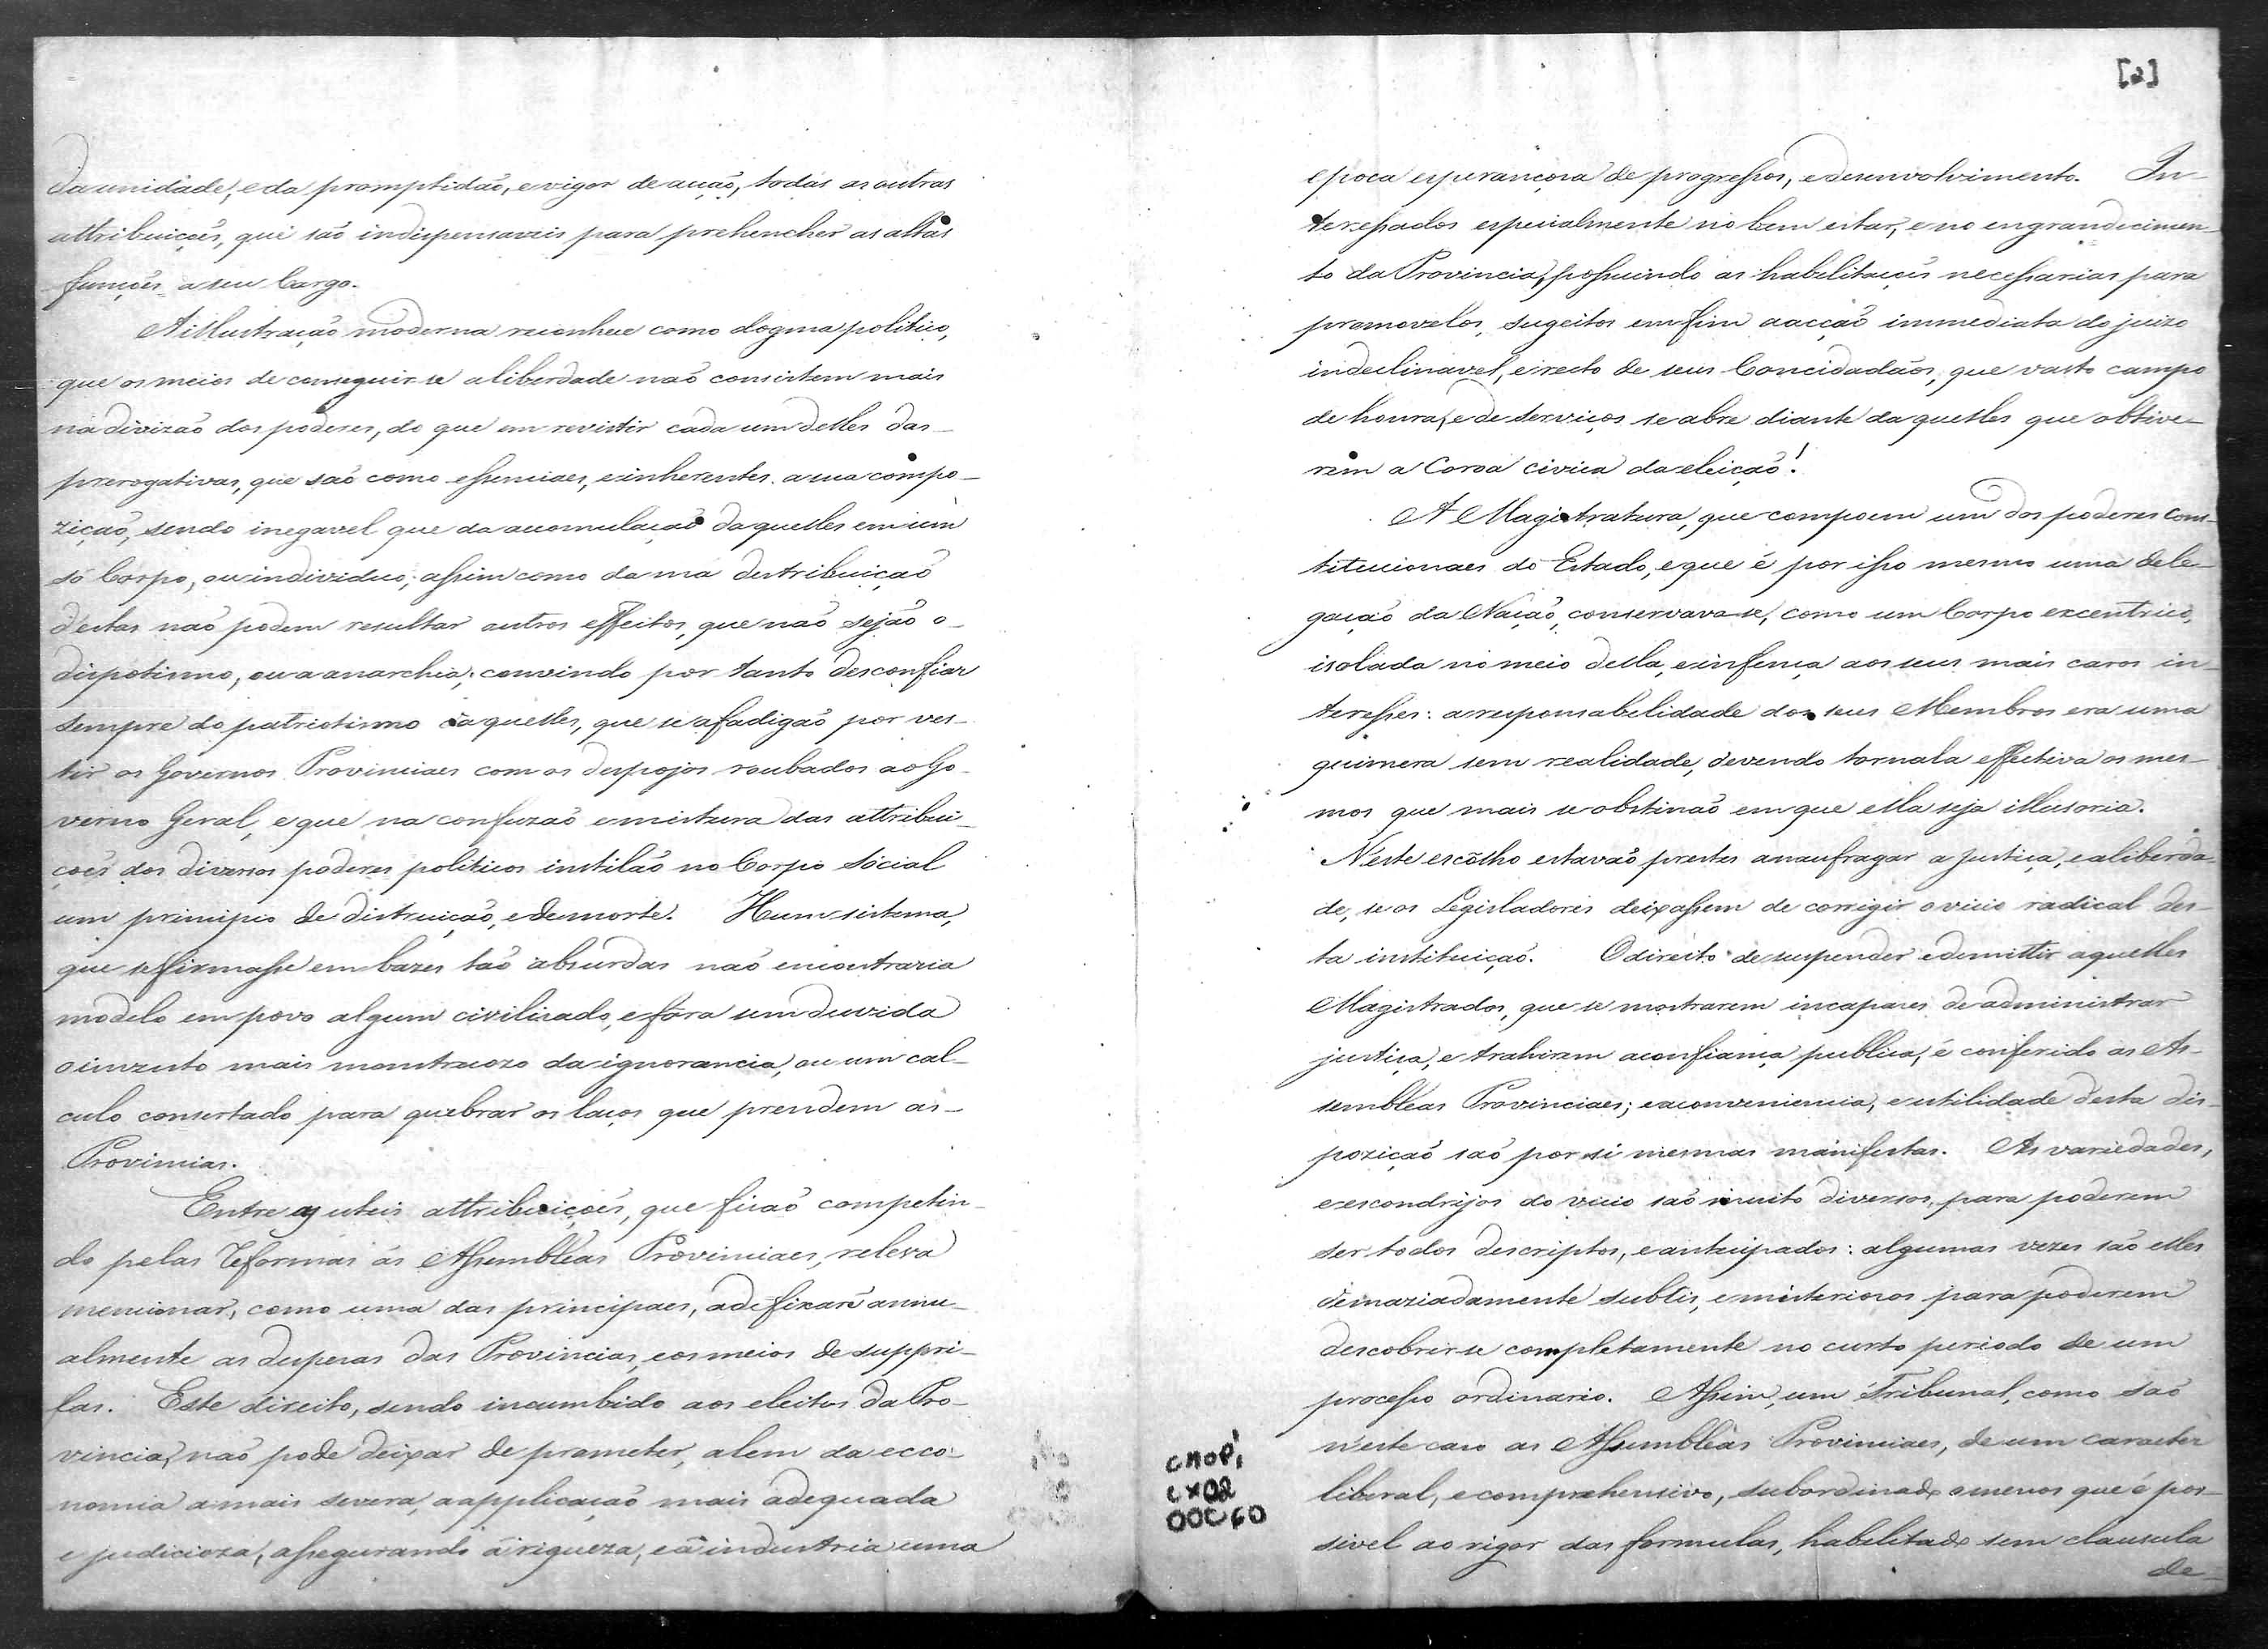 da unidade, e da promptidão, e vigor de acção, todas as outras
attribuições, que são indispensaveis para prehencher as altas
funções a seu Cargo.
A illustração moderna reconhece como dogma politico,
que os meios de conseguir-se a liberdade naõ consistem mais
na divizaõ dos poderes, do que em revistir cada um delles das
prerogativas, que saõ como essenciaes, e inherentes a sua compo-
ziçaõ, sendo inegavel que da accomulaçaõ daquelles em um
só Corpo, ou individuo; assim como da má destribuiçaõ
destas naõ podem resultar outros effeitos, que naõ sejaõ o
dispotismo, ou a anarchia; convindo por tanto desconfiar
sempre do patriotismo daquelles, que se afadigaõ por ves-
tir os Governos Provinciaes com os despojos roubados ao Go-
verno Geral, e que na confuzaõ e mistura das attribui-
ções dos diversos poderes politicos instilaõ no Corpo social
um principio de distruiçaõ, e de morte. Hum sistema,
que se firmasse em bazes taõ absurdas naõ encontraria
modelo em povo algum civilizado, e fôra sem duvida
o invento mais monstruozo da ignorancia, ou um cal-
culo consertado para quebrar os laços que prendem as
Provincias.
Entre as uteis attribuições, que ficaõ competin-
do pelas Reformas ás Assembléas Provinciaes, releva
mencionar, como uma das principaes, a de fixarem annu-
almente as despezas das Provincias, e os meios de suppri-
las. Este direito, sendo incumbido aos eleitos da Pro-
vincia, naõ pode deixar de prometer, alem da ecco-
nomia a mais severa, a applicaçaõ mais adequada
e judicioza, assegurando á riqueza, e á industria uma
[2]
epoca esperançosa de progressos, e desenvolvimento. In-
teressados especialmente no bem estar, e no engrandecimen-
to da Provincia, possuindo as habilitações necessarias para
promovelos, sugeitos em fim a acção immediata do juizo
indeclinavel, e recto de seus Concidadãos, que vasto campo
de honra, e de serviços se abre diante daquelles que obtive-
rem a Coroa civica da eleiçaõ!
A Magistratura, que compoem um dos poderes cons-
titucionaes do Estado, e que é por isso mesmo uma dele-
gaçaõ da Naçaõ, conservava-se, como um Corpo excentrico,
isolada no meio della, e infensa aos seus mais caros in-
teresses: a responsabelidade dos seus Membros era uma
quimera sem realidade, devendo tornala effectiva os mes-
mos que mais se obstinaõ em que ella seja illusoria.
N'este escôlho estavaõ prestes a naufragar a justiça, e a liberda-
de, se os Legisladores deixassem de corrigir o vicio radical des-
ta instituiçaõ. O direito de suspender e demittir aquelles
Magistrados, que se mostrarem incapazes de administrar
justiça, e trahirem a confiança publica, é conferido as As-
sembléas Provinciaes; e a conveniencia, e utilidade desta dis-
poziçaõ saõ por si mesmas manifestas. As variedades,
e escondrijos do vicio saõ muito diversos, para poderem
ser todos descriptos, e antecipados: algumas vezes saõ elles
demaziadamente subtis, e misteriosos para poderem
descobrir-se completamente no curto periodo de um
processo ordinario. Assim, um Tribunal, como saõ
n'este caso as Assembléas Provinciaes, de um caracter
liberal, e comprehensivo, subordinado o menos que é pos-
sivel ao rigor das formulas, habilitado sem clausula
de
CMOP,
CX02
00060